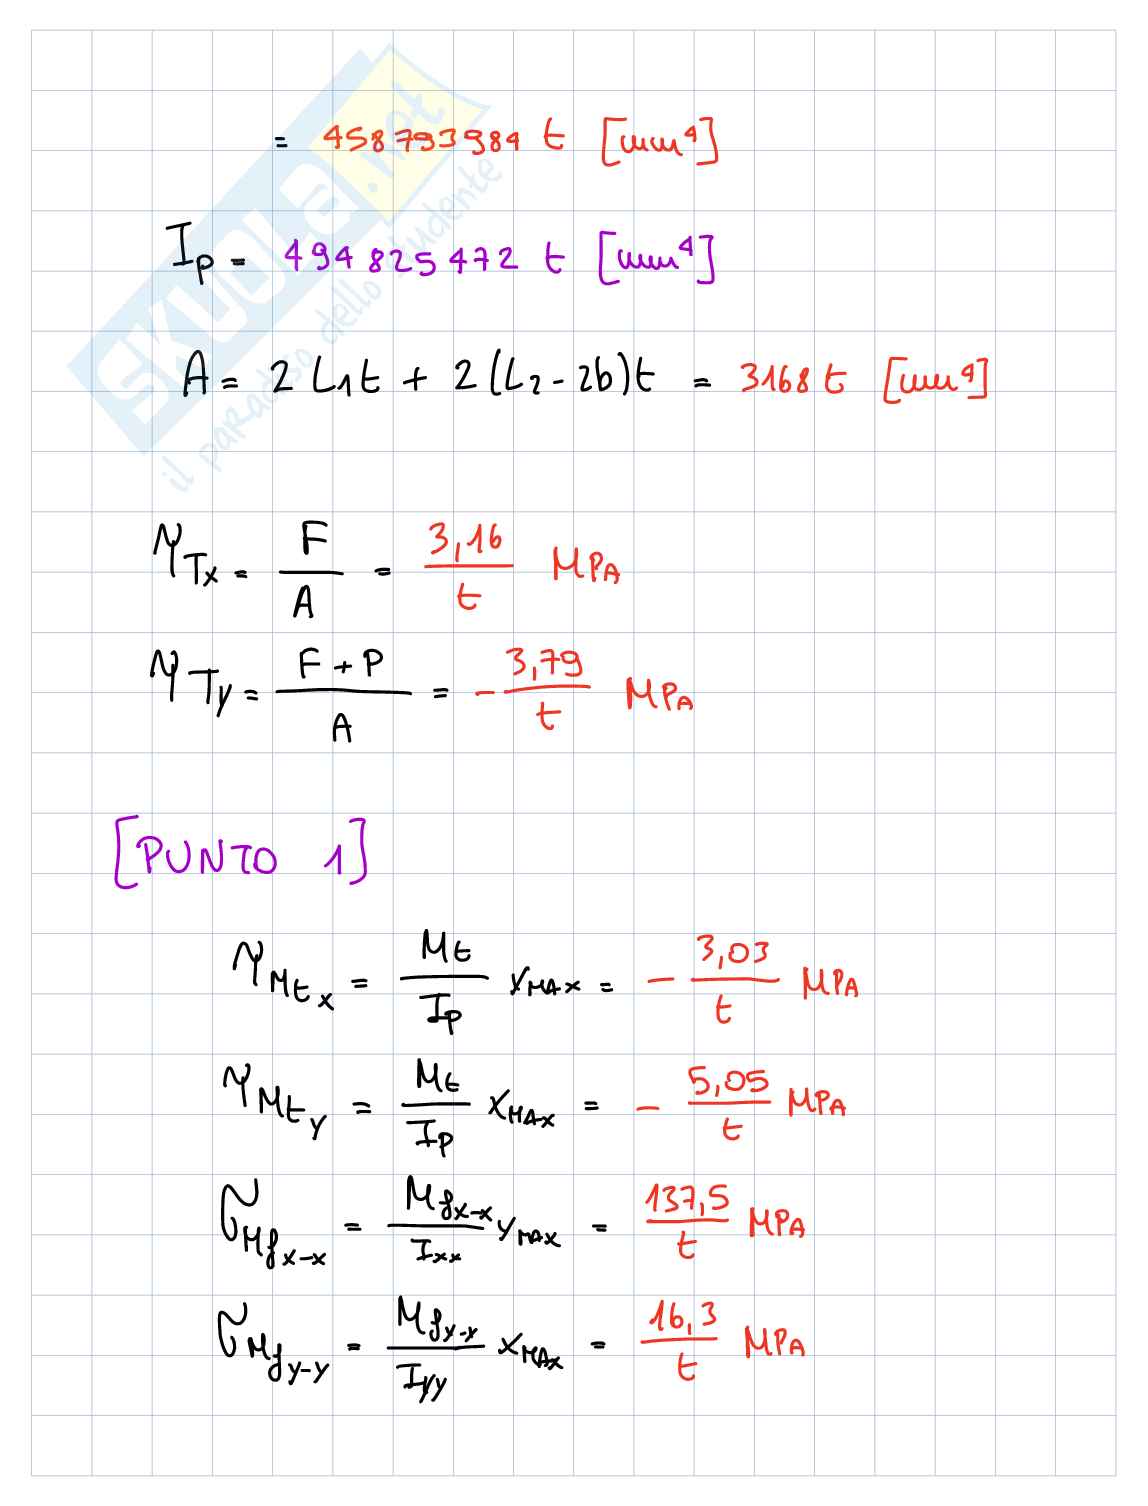 = 458793984 t [mm⁴]
Ip = 494825472 t [mm⁴]
A = 2 L₁t + 2 (L₂ - 2b)t = 3168 t [mm⁴]
τTx = F/A = 3,16/t MPA
τTy = F+P/A = - 3,79/t MPA
[PUNTO 1]
τMtx = Mt/Ip YMAX = - 3,03/t MPA
τMty = Mt/Ip XMAX = - 5,05/t MPA
σMfx-x = Mfx-x/Ixx YMAX = 137,5/t MPA
σMfy-y = Mfy-y/Iyy XMAX = 16,3/t MPA
SKUOLA.net
il paradiso dello studente